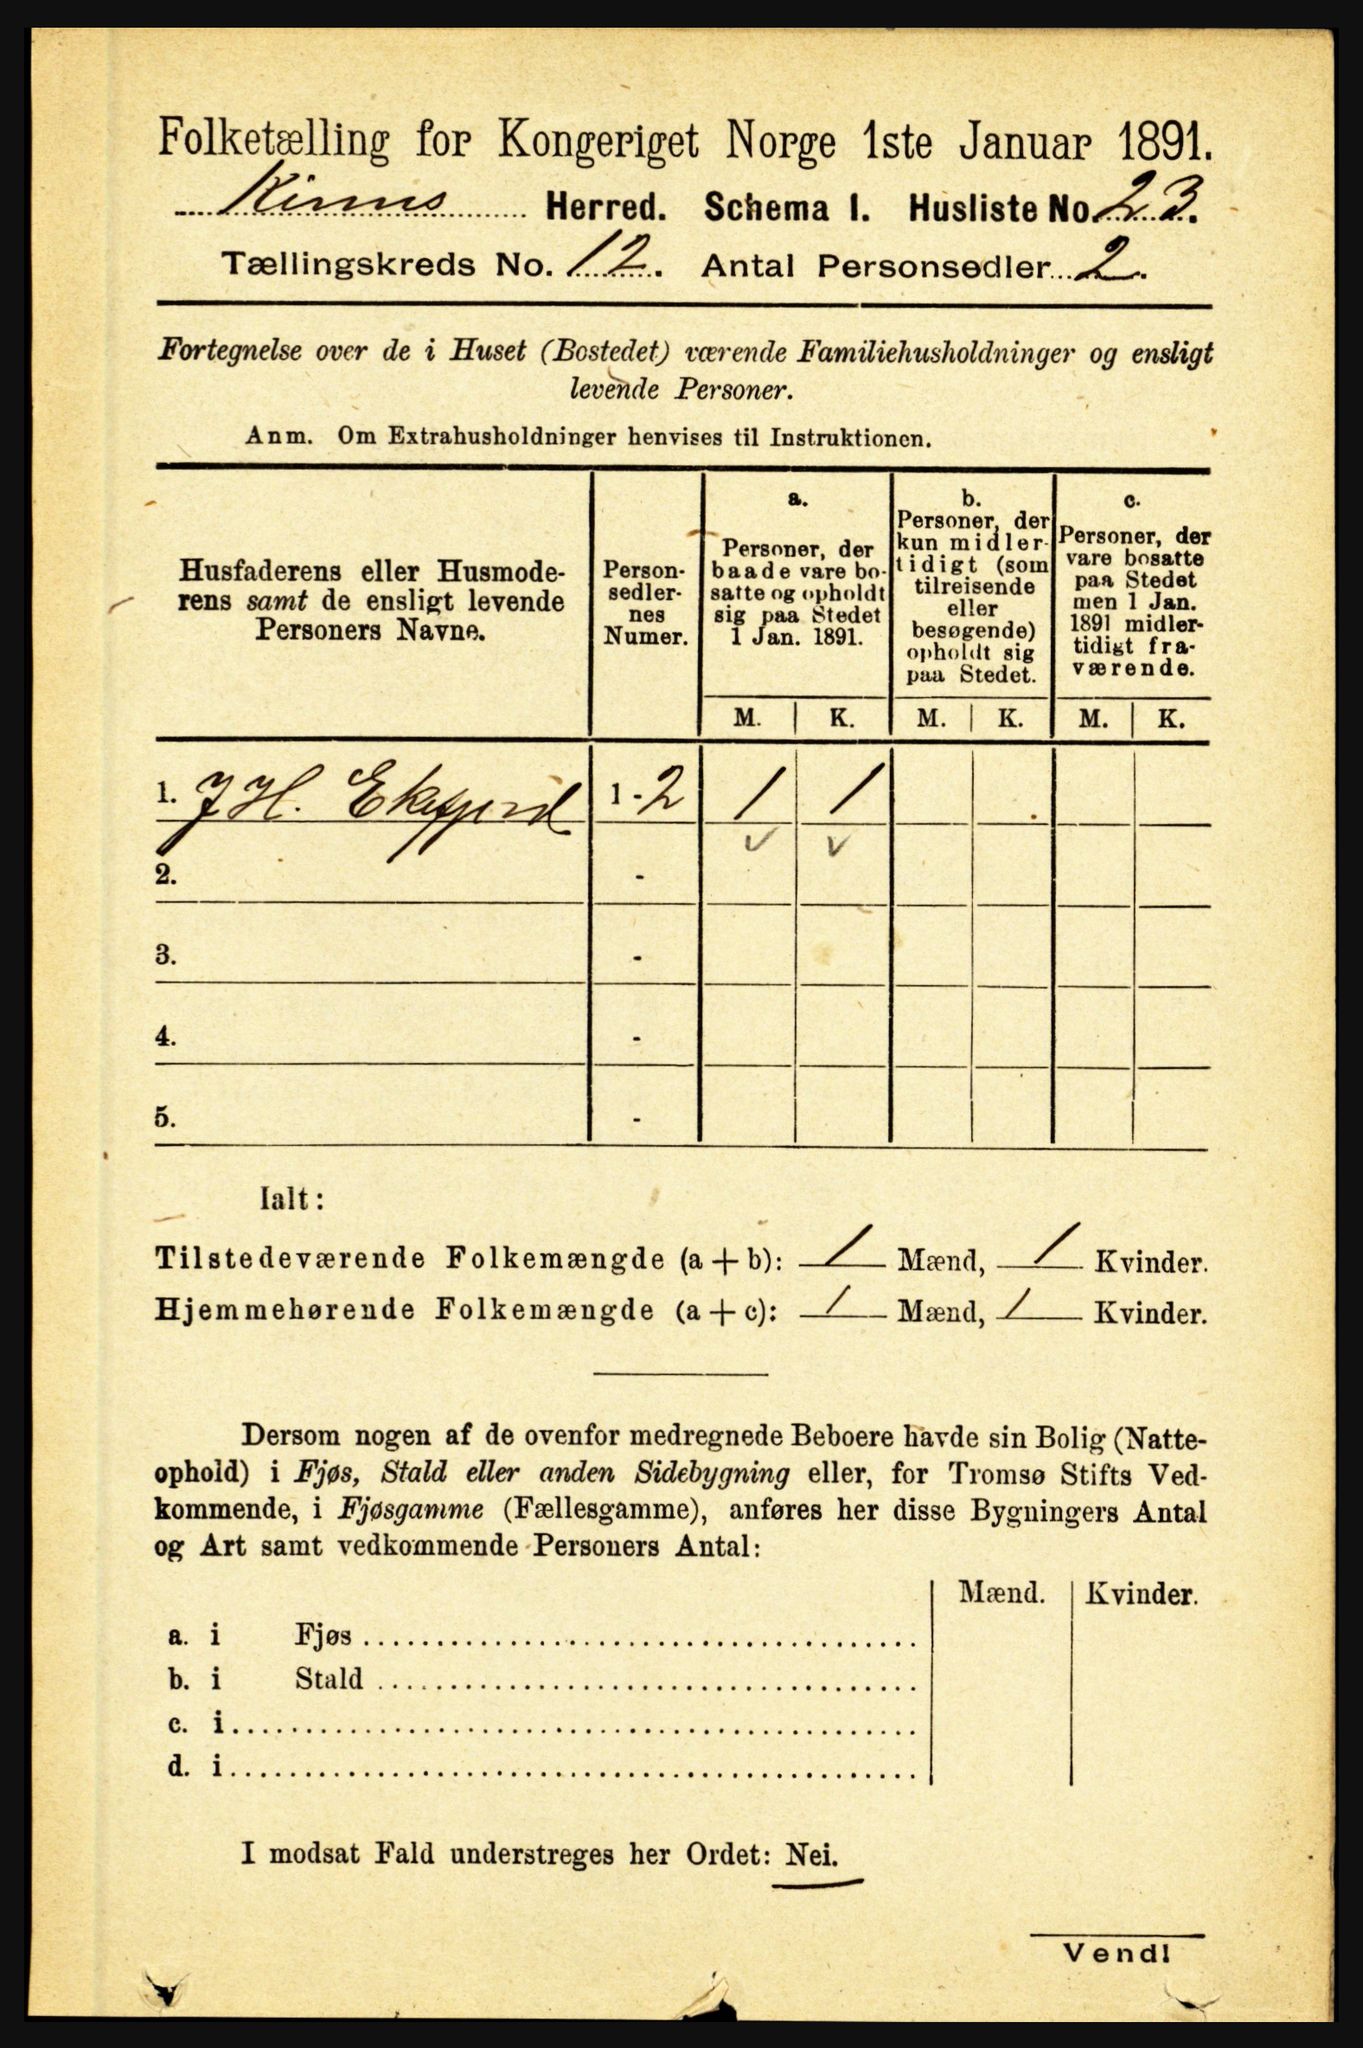 Folketælling for Kongeriget Norge 1ste Januar 1891.
Kinns Herred. Schema I. Husliste No. 23.
Tællingskreds No. 12. Antal Personsedler 2.
Fortegnelse over de i Huset (Bostedet) værende Familiehusholdninger og ensligt
levende Personer.
Anm. Om Extrahusholdninger henvises til Instruktionen.
Husfaderens eller Husmode-
rens samt de ensligt levende
Personers Navne.
Person-
sedler-
nes
Numer.
a.
Personer, der
baade vare bo-
satte og opholdt
sig paa Stedet
1 Jan. 1891.
b.
Personer, der
kun midler-
tidigt (som
tilreisende
eller
besøgende)
opholdt sig
paa Stedet.
c.
Personer, der
vare bosatte
paa Stedet
men 1 Jan.
1891 midler-
tidigt fra-
værende.
M. K. M. K. M. K.
1. J H. Ekefjord 1 - 2 1 1
2. -
3. -
4. -
5. -
Ialt:
Tilstedeværende Folkemængde (a + b): 1 Mænd, 1 Kvinder.
Hjemmehørende Folkemængde (a + c): 1 Mænd, 1 Kvinder.
Dersom nogen af de ovenfor medregnede Beboere havde sin Bolig (Natte-
ophold) i Fjøs, Stald eller anden Sidebygning eller, for Tromsø Stifts Ved-
kommende, i Fjøsgamme (Fællesgamme), anføres her disse Bygningers Antal
og Art samt vedkommende Personers Antal:
Mænd. Kvinder.
a. i Fjøs
b. i Stald
c. i
d. i
I modsat Fald understreges her Ordet: Nei.
Vend!